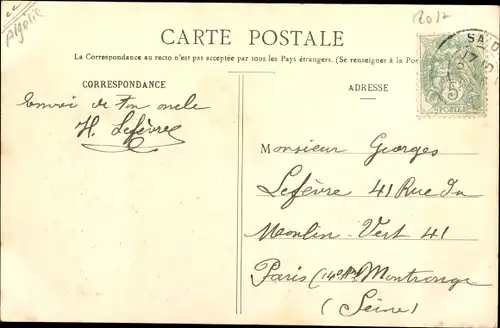 Algérie
2017
CARTE POSTALE
La Correspondance au recto n'est pas acceptée par tous les Pays étrangers. (Se renseigner à la Pos
CORRESPONDANCE
ADRESSE
SAÏD
5
POSTES
Envoi de ton oncle
H. Lefèvre
Monsieur Georges
Lefèvre 41 Rue du
Moulin Vert 41
Paris (14e Arr) Montrouge
(Seine)